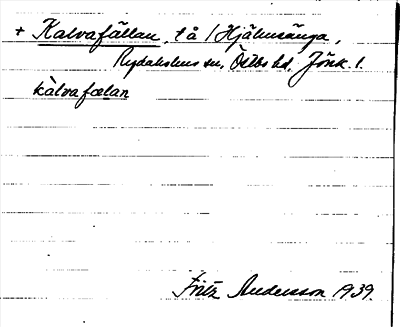 + Kalvafällan, tå / Hjälmsänga,
Rydaholms sn, Östbo hd. Jönk. l.
kàlvafælan
Fritz Andersson 1939.